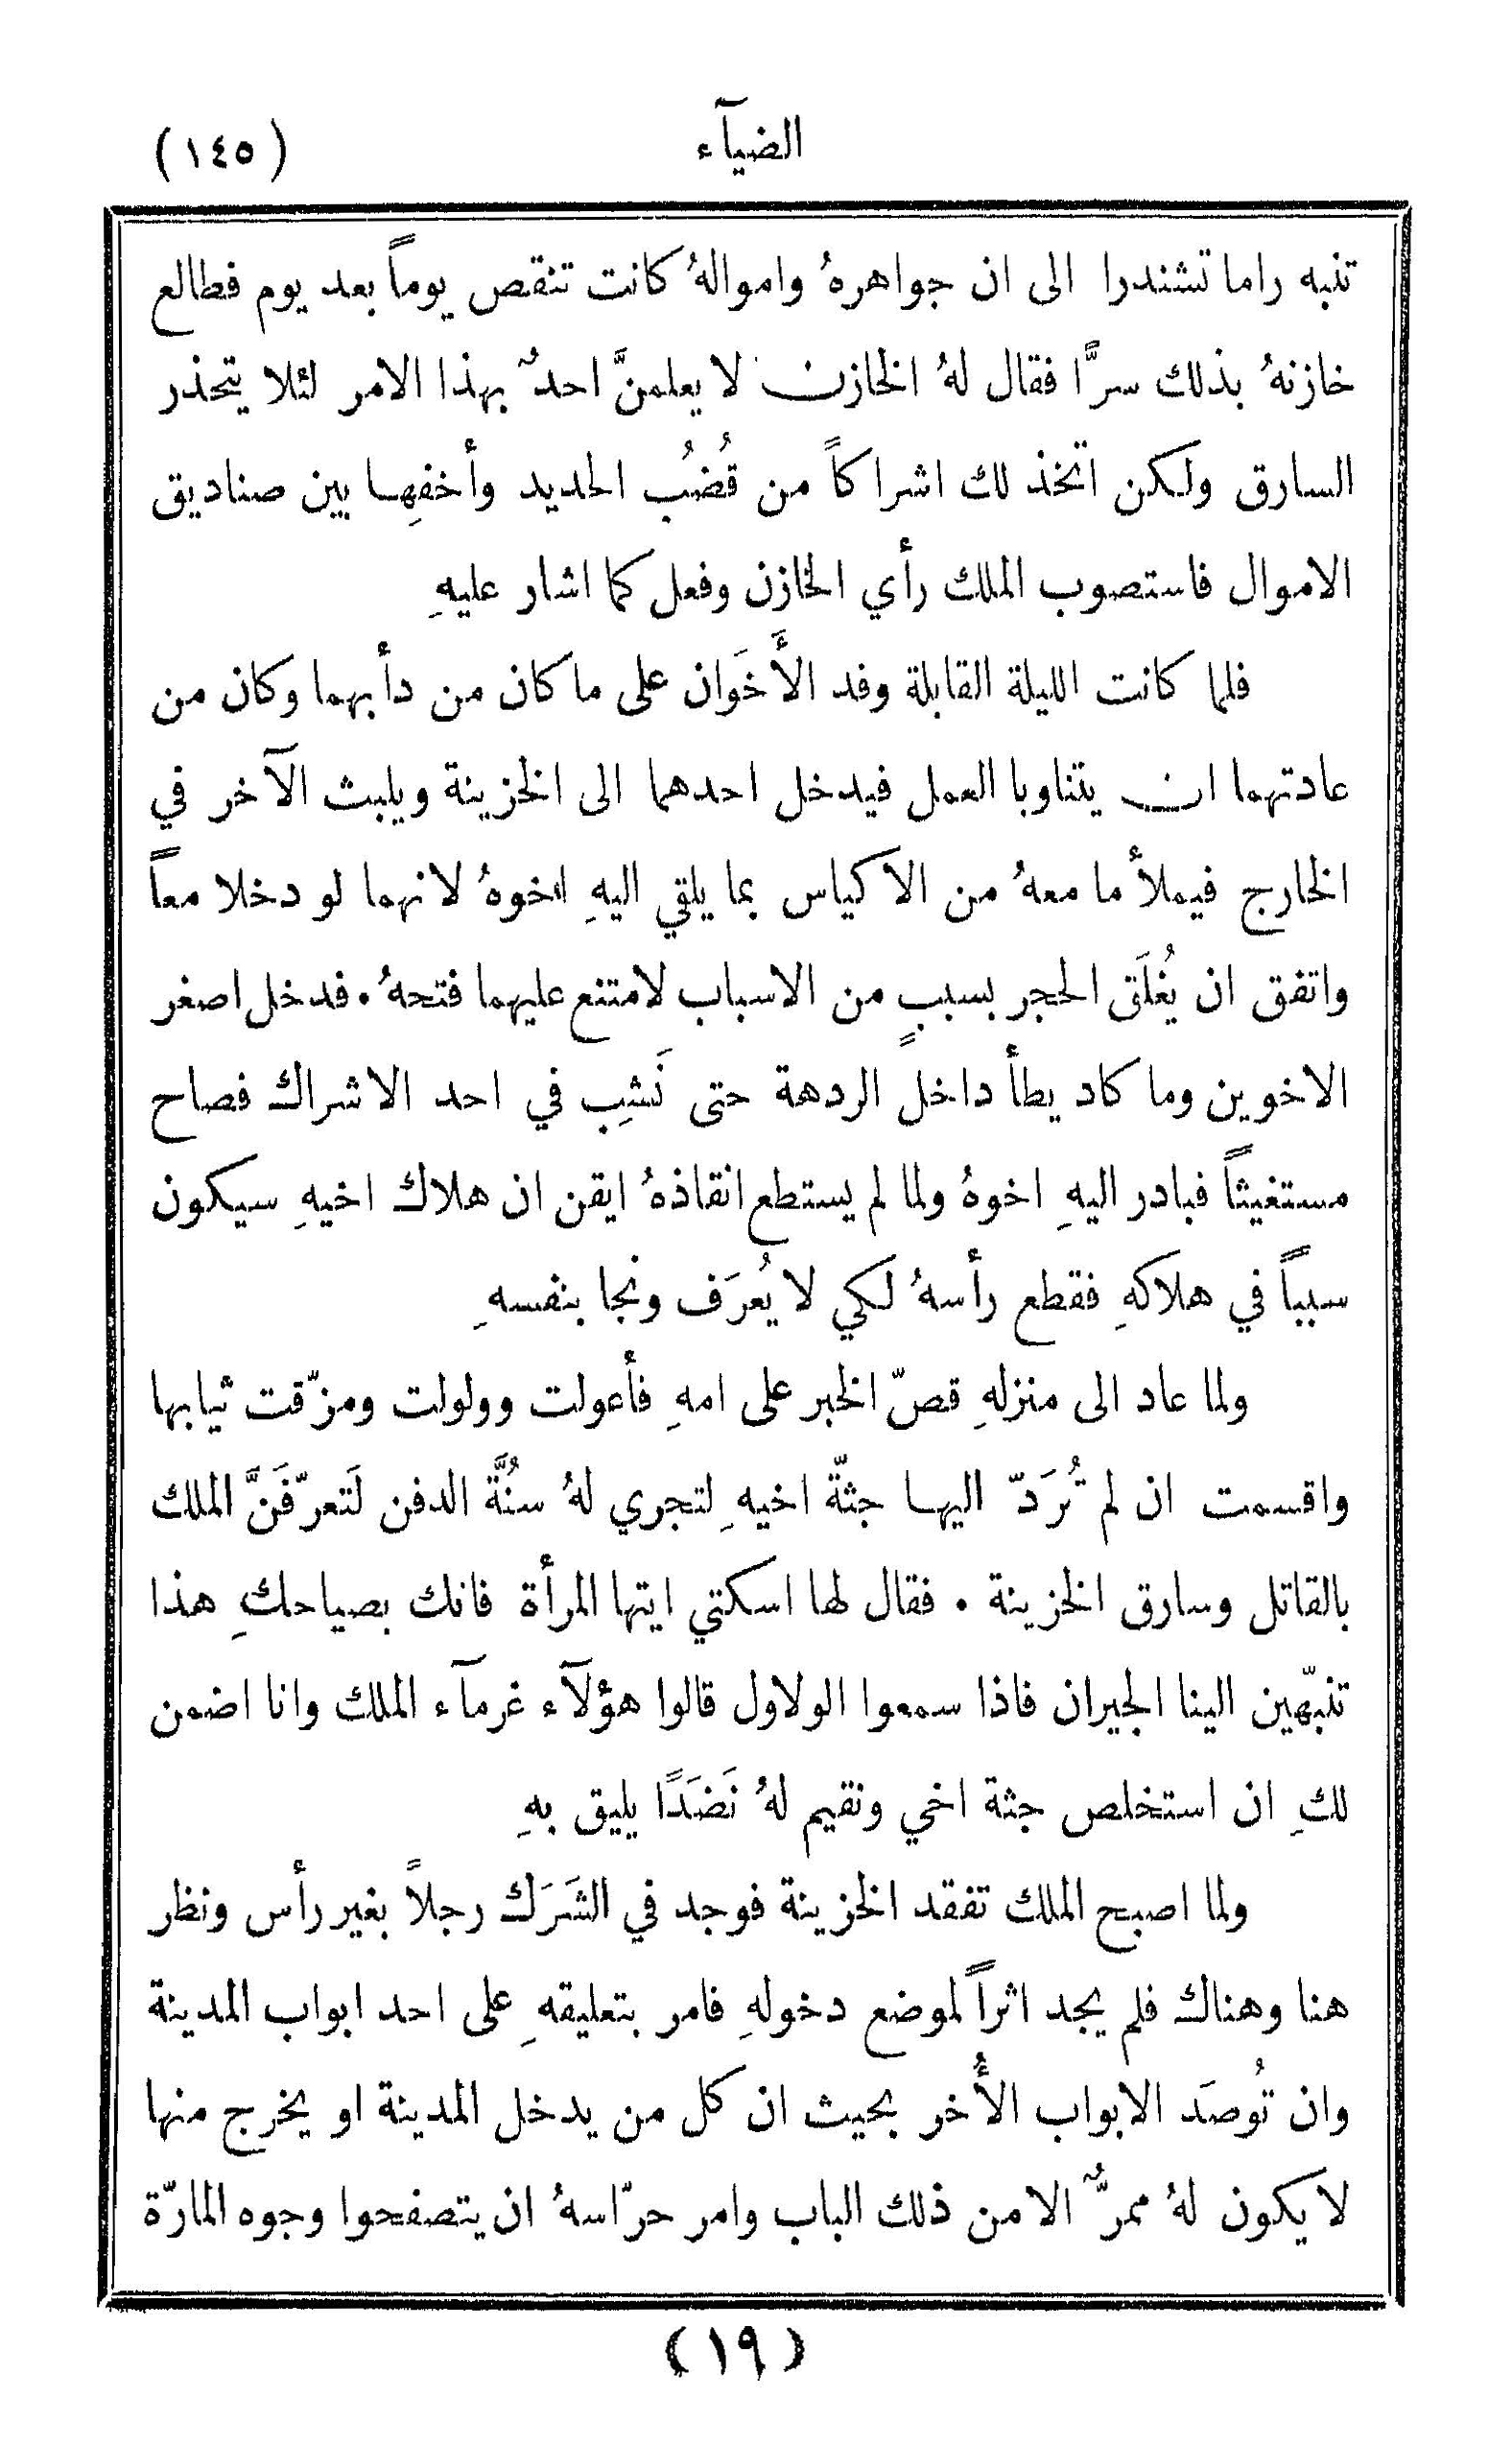 الضيآء
(١٤٥)
تنبه راما تشندرا الى ان جواهرهُ واموالهُ كانت تنقص يوماً بعد يوم فطالع
خازنهُ بذلك سرًّا فقال لهُ الخازن لا يعلمنَّ احدٌ بهذا الامر لئلا يتحذر
السارق ولكن اتخذ لك اشراكاً من قُضُب الحديد وأخفِها بين صناديق
الاموال فاستصوب الملك رأي الخازن وفعل كما اشار عليهِ
فلما كانت الليلة القابلة وفد الأَخَوان على ما كان من دأبهما وكان من
عادتهما ان يتناوبا العمل فيدخل احدهما الى الخزينة ويلبث الآخر في
الخارج فيملأ ما معهُ من الاكياس بما يلقي اليهِ اخوهُ لانهما لو دخلا معاً
واتفق ان يُغلَق الحجر بسببٍ من الاسباب لامتنع عليهما فتحهُ. فدخل اصغر
الاخوين وما كاد يطأ داخل الردهة حتى نَشِب في احد الاشراك فصاح
مستغيثاً فبادر اليهِ اخوهُ ولما لم يستطع انقاذهُ ايقن ان هلاك اخيهِ سيكون
سبباً في هلاكهِ فقطع رأسهُ لكي لا يُعرَف ونجا بنفسهِ
ولما عاد الى منزلهِ قصّ الخبر على امهِ فأعولت وولولت ومزّقت ثيابها
واقسمت ان لم تُرَدّ اليها جثّة اخيهِ لتجري لهُ سنُّة الدفن لَتعرّفَنَّ الملك
بالقاتل وسارق الخزينة . فقال لها اسكتي ايتها المرأة فانك بصياحكِ هذا
تنبّهين الينا الجيران فاذا سمعوا الولاول قالوا هؤلآء غرمآء الملك وانا اضمن
لكِ ان استخلص جثة اخي ونقيم لهُ نَضَدًا يليق بهِ
ولما اصبح الملك تفقد الخزينة فوجد في الشَرَك رجلاً بغير رأس ونظر
هنا وهناك فلم يجد اثراً لموضع دخولهِ فامر بتعليقهِ على احد ابواب المدينة
وان تُوصَد الابواب الأُخر بحيث ان كل من يدخل المدينة او يخرج منها
لا يكون لهُ ممرٌّ الا من ذلك الباب وامر حرّاسهُ ان يتصفحوا وجوه المارّة
(١٩)